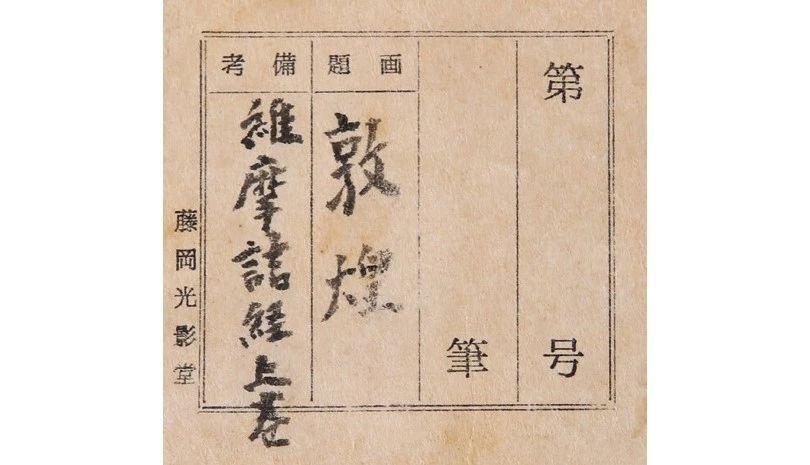 第 号
筆
画題
敦煌
備考
維摩詰経上巻
藤岡光影堂